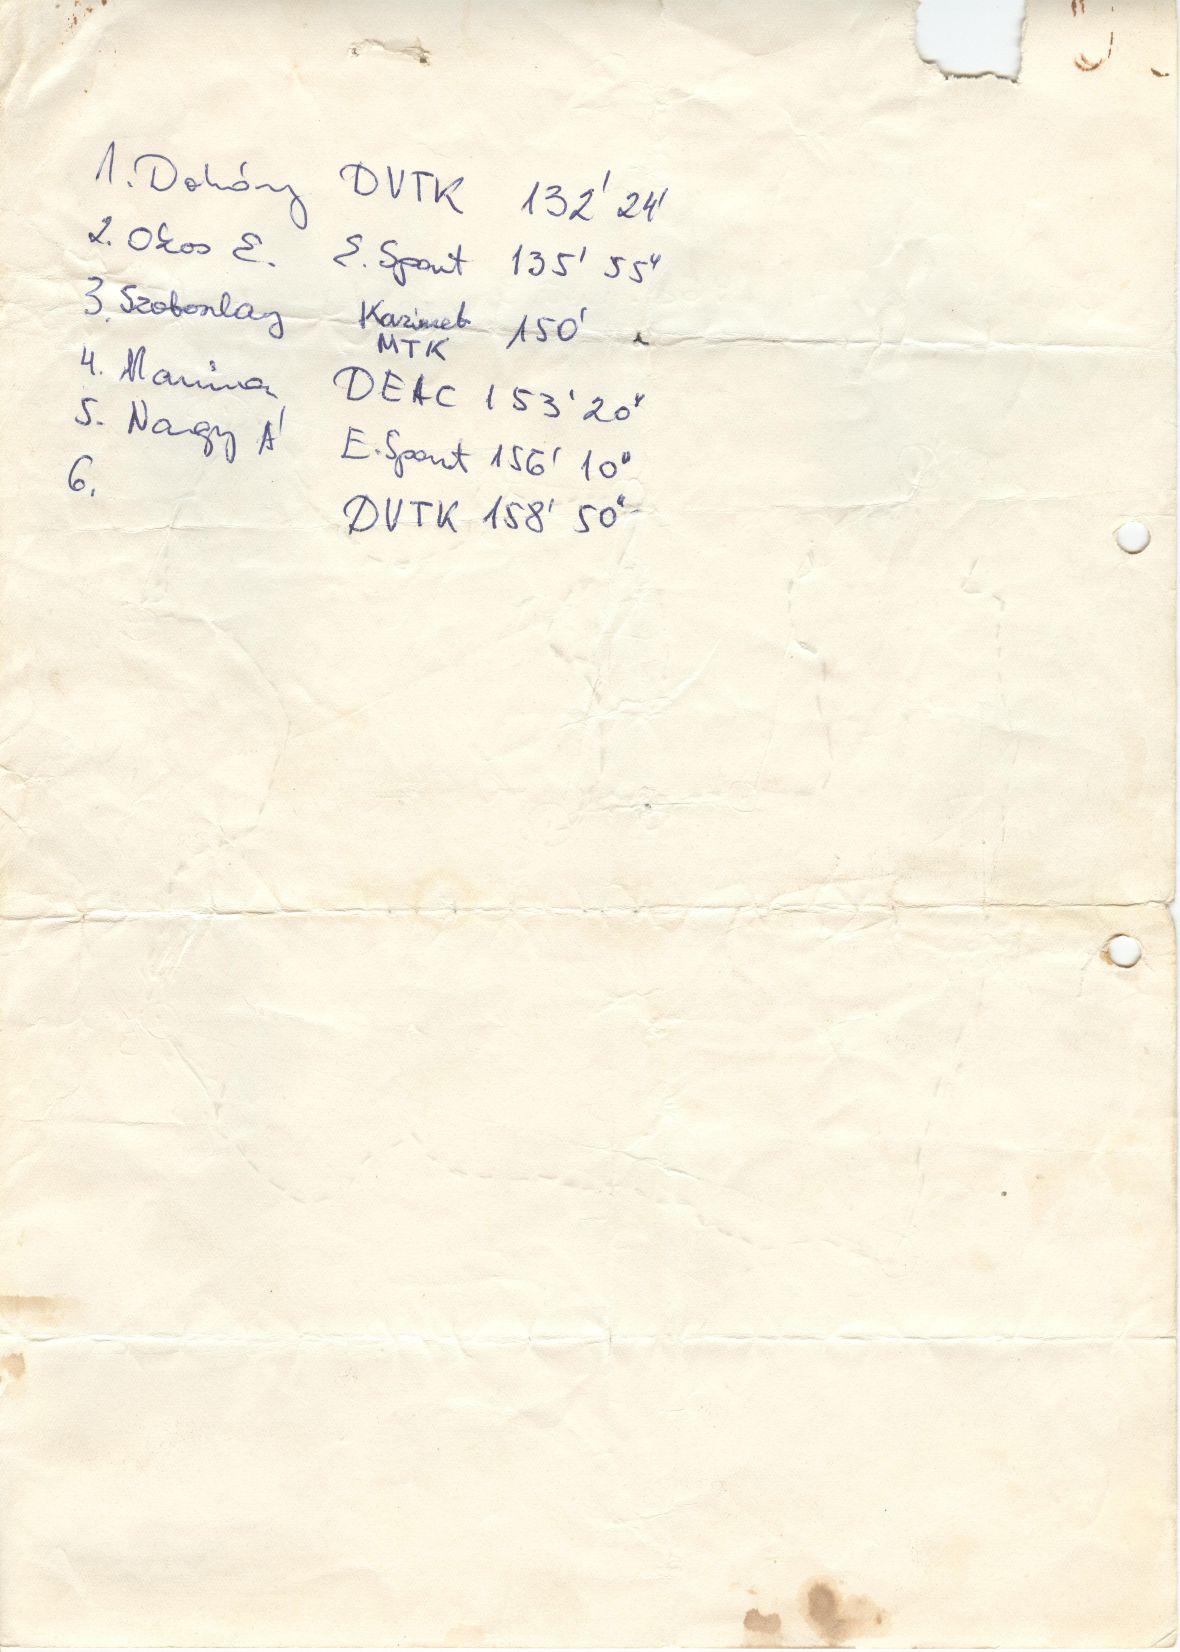 1. Dohány DVTK 132' 24'
2. Okos E. E. Spart 135' 55"
3. Szoboszlay Kazincb MTK 150'
4. Marina DEAC 153' 20"
5. Nagy Á E. Spart 156' 10"
6. DVTK 158' 50"